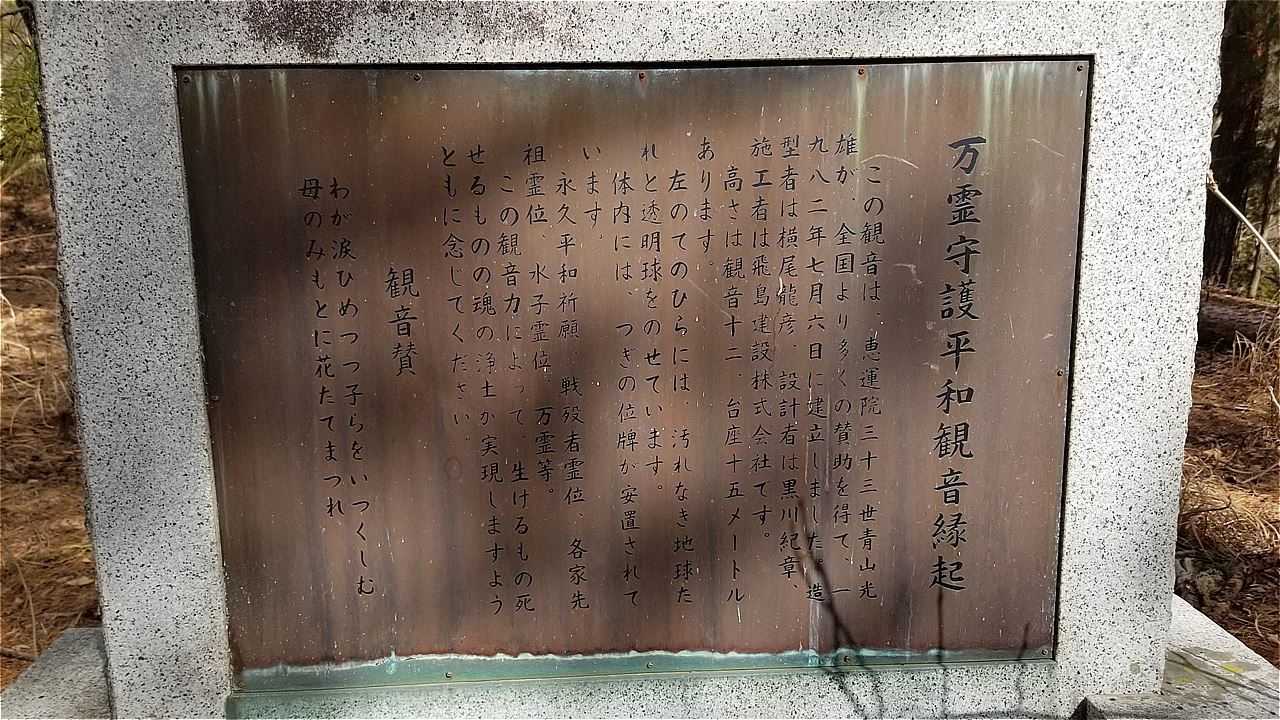 万霊守護平和観音縁起
この観音は、恵運院三十三世青山光
雄が、全国より多くの賛助を得て、一
九八二年七月六日に建立しました。造
型者は横尾龍彦、設計者は黒川紀章、
施工者は飛島建設株式会社です。
高さは観音十二、台座十五メートル
あります。
左のてのひらには、汚れなき地球た
れと透明球をのせています。
体内には、つぎの位牌が安置されて
います。
永久平和祈願、戦歿者霊位、各家先
祖霊位、水子霊位、万霊等。
この観音力によって、生けるもの死
せるものの魂の浄土が実現しますよう
ともに念じてください。
観音賛
わが涙ひめつつ子らをいつくしむ
母のみもとに花たてまつれ